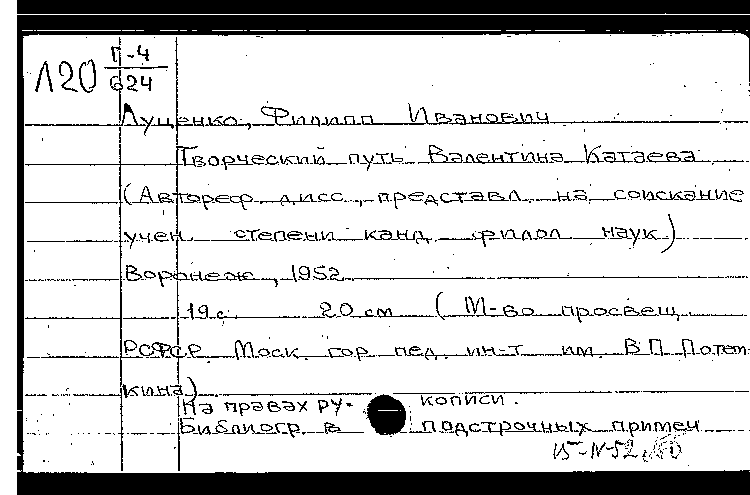 Г-4
Л20 624
Луценко, Филипп Иванович
Творческий путь Валентина Катаева
(Автореф. дисс., представл. на соискание
учен. степени канд. филол. наук)
Воронеж, 1952.
19 с. 20 см (М-во просвещ.
РСФСР. Моск. гор. пед. ин-т им. В.П. Потем-
кина)
На правах ру- кописи.
Библиогр. в подстрочных примеч.